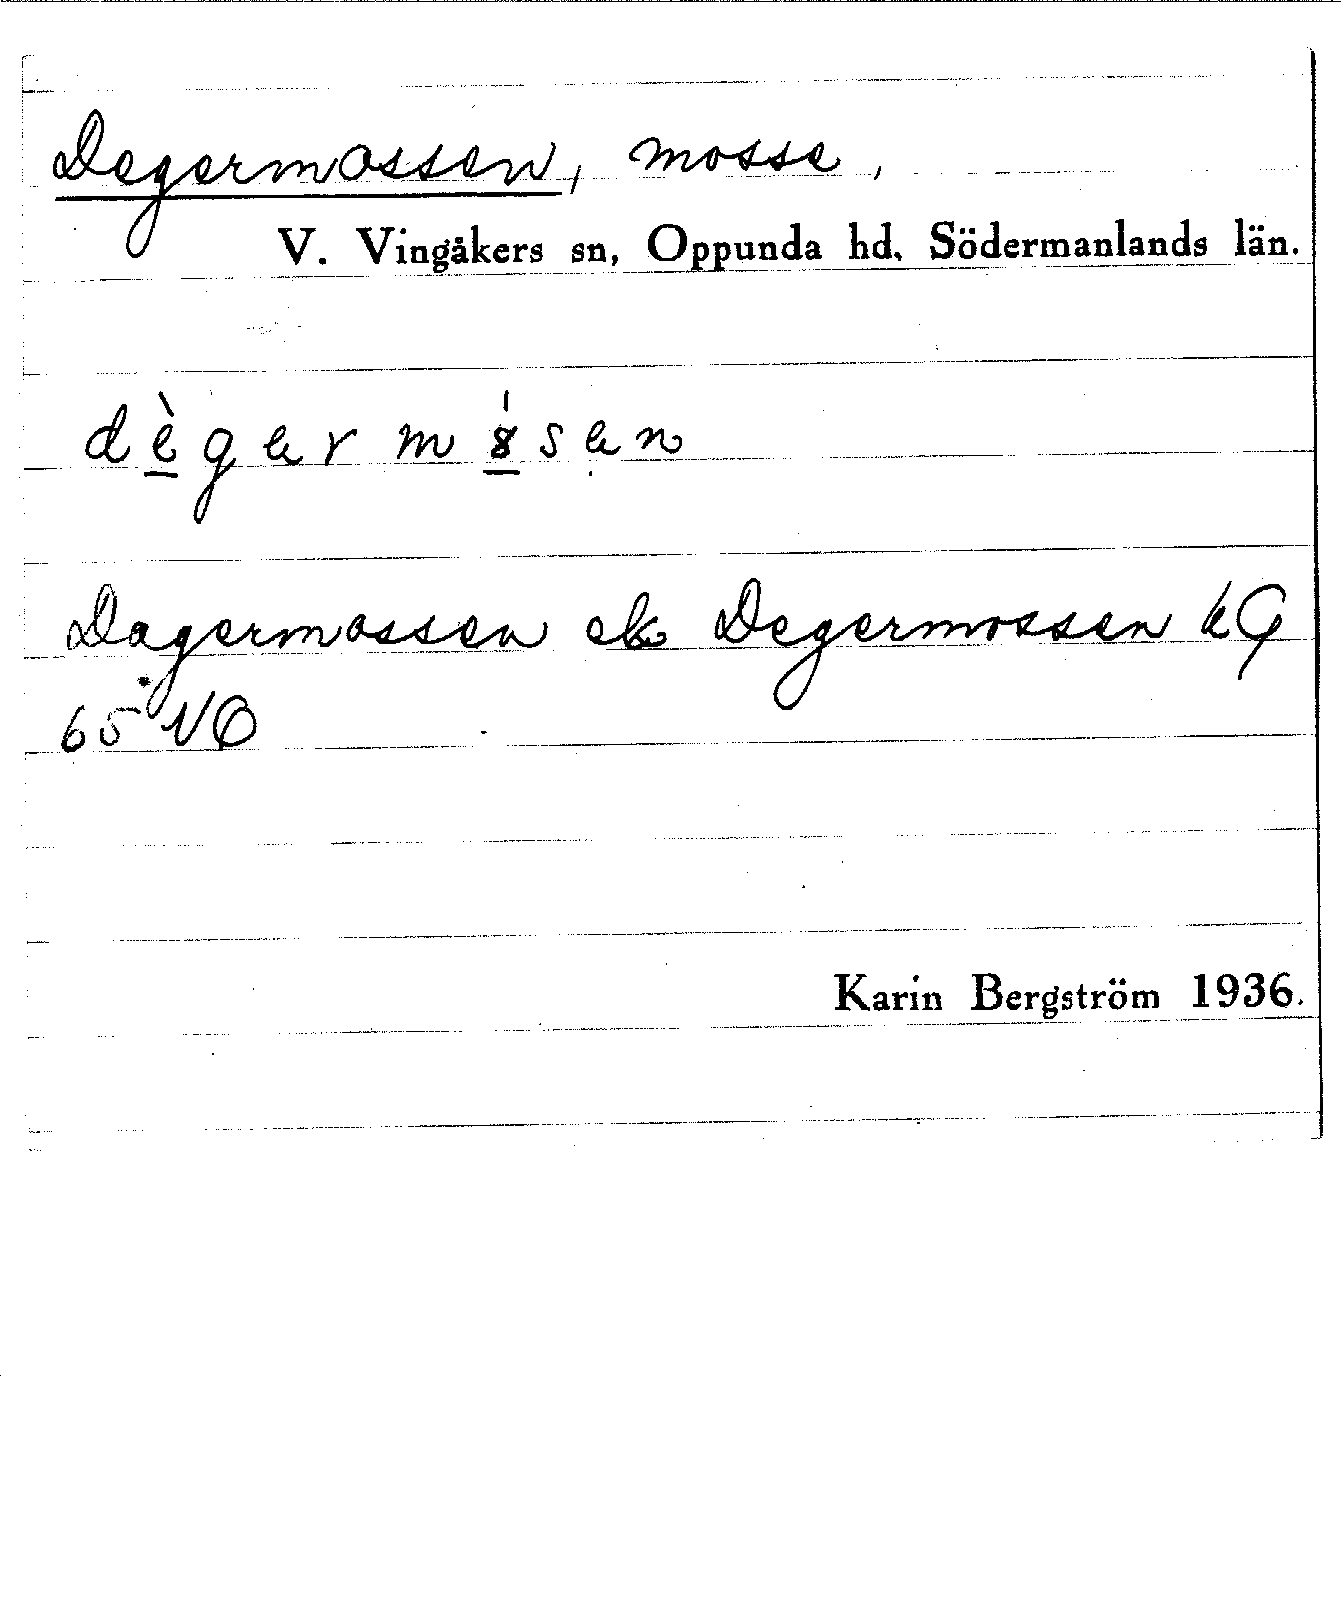 Degermossen, mosse,
V. Vingåkers sn, Oppunda hd, Södermanlands län.
Dagermossen ek Degermossen kG
65 NO
Karin Bergström 1936.